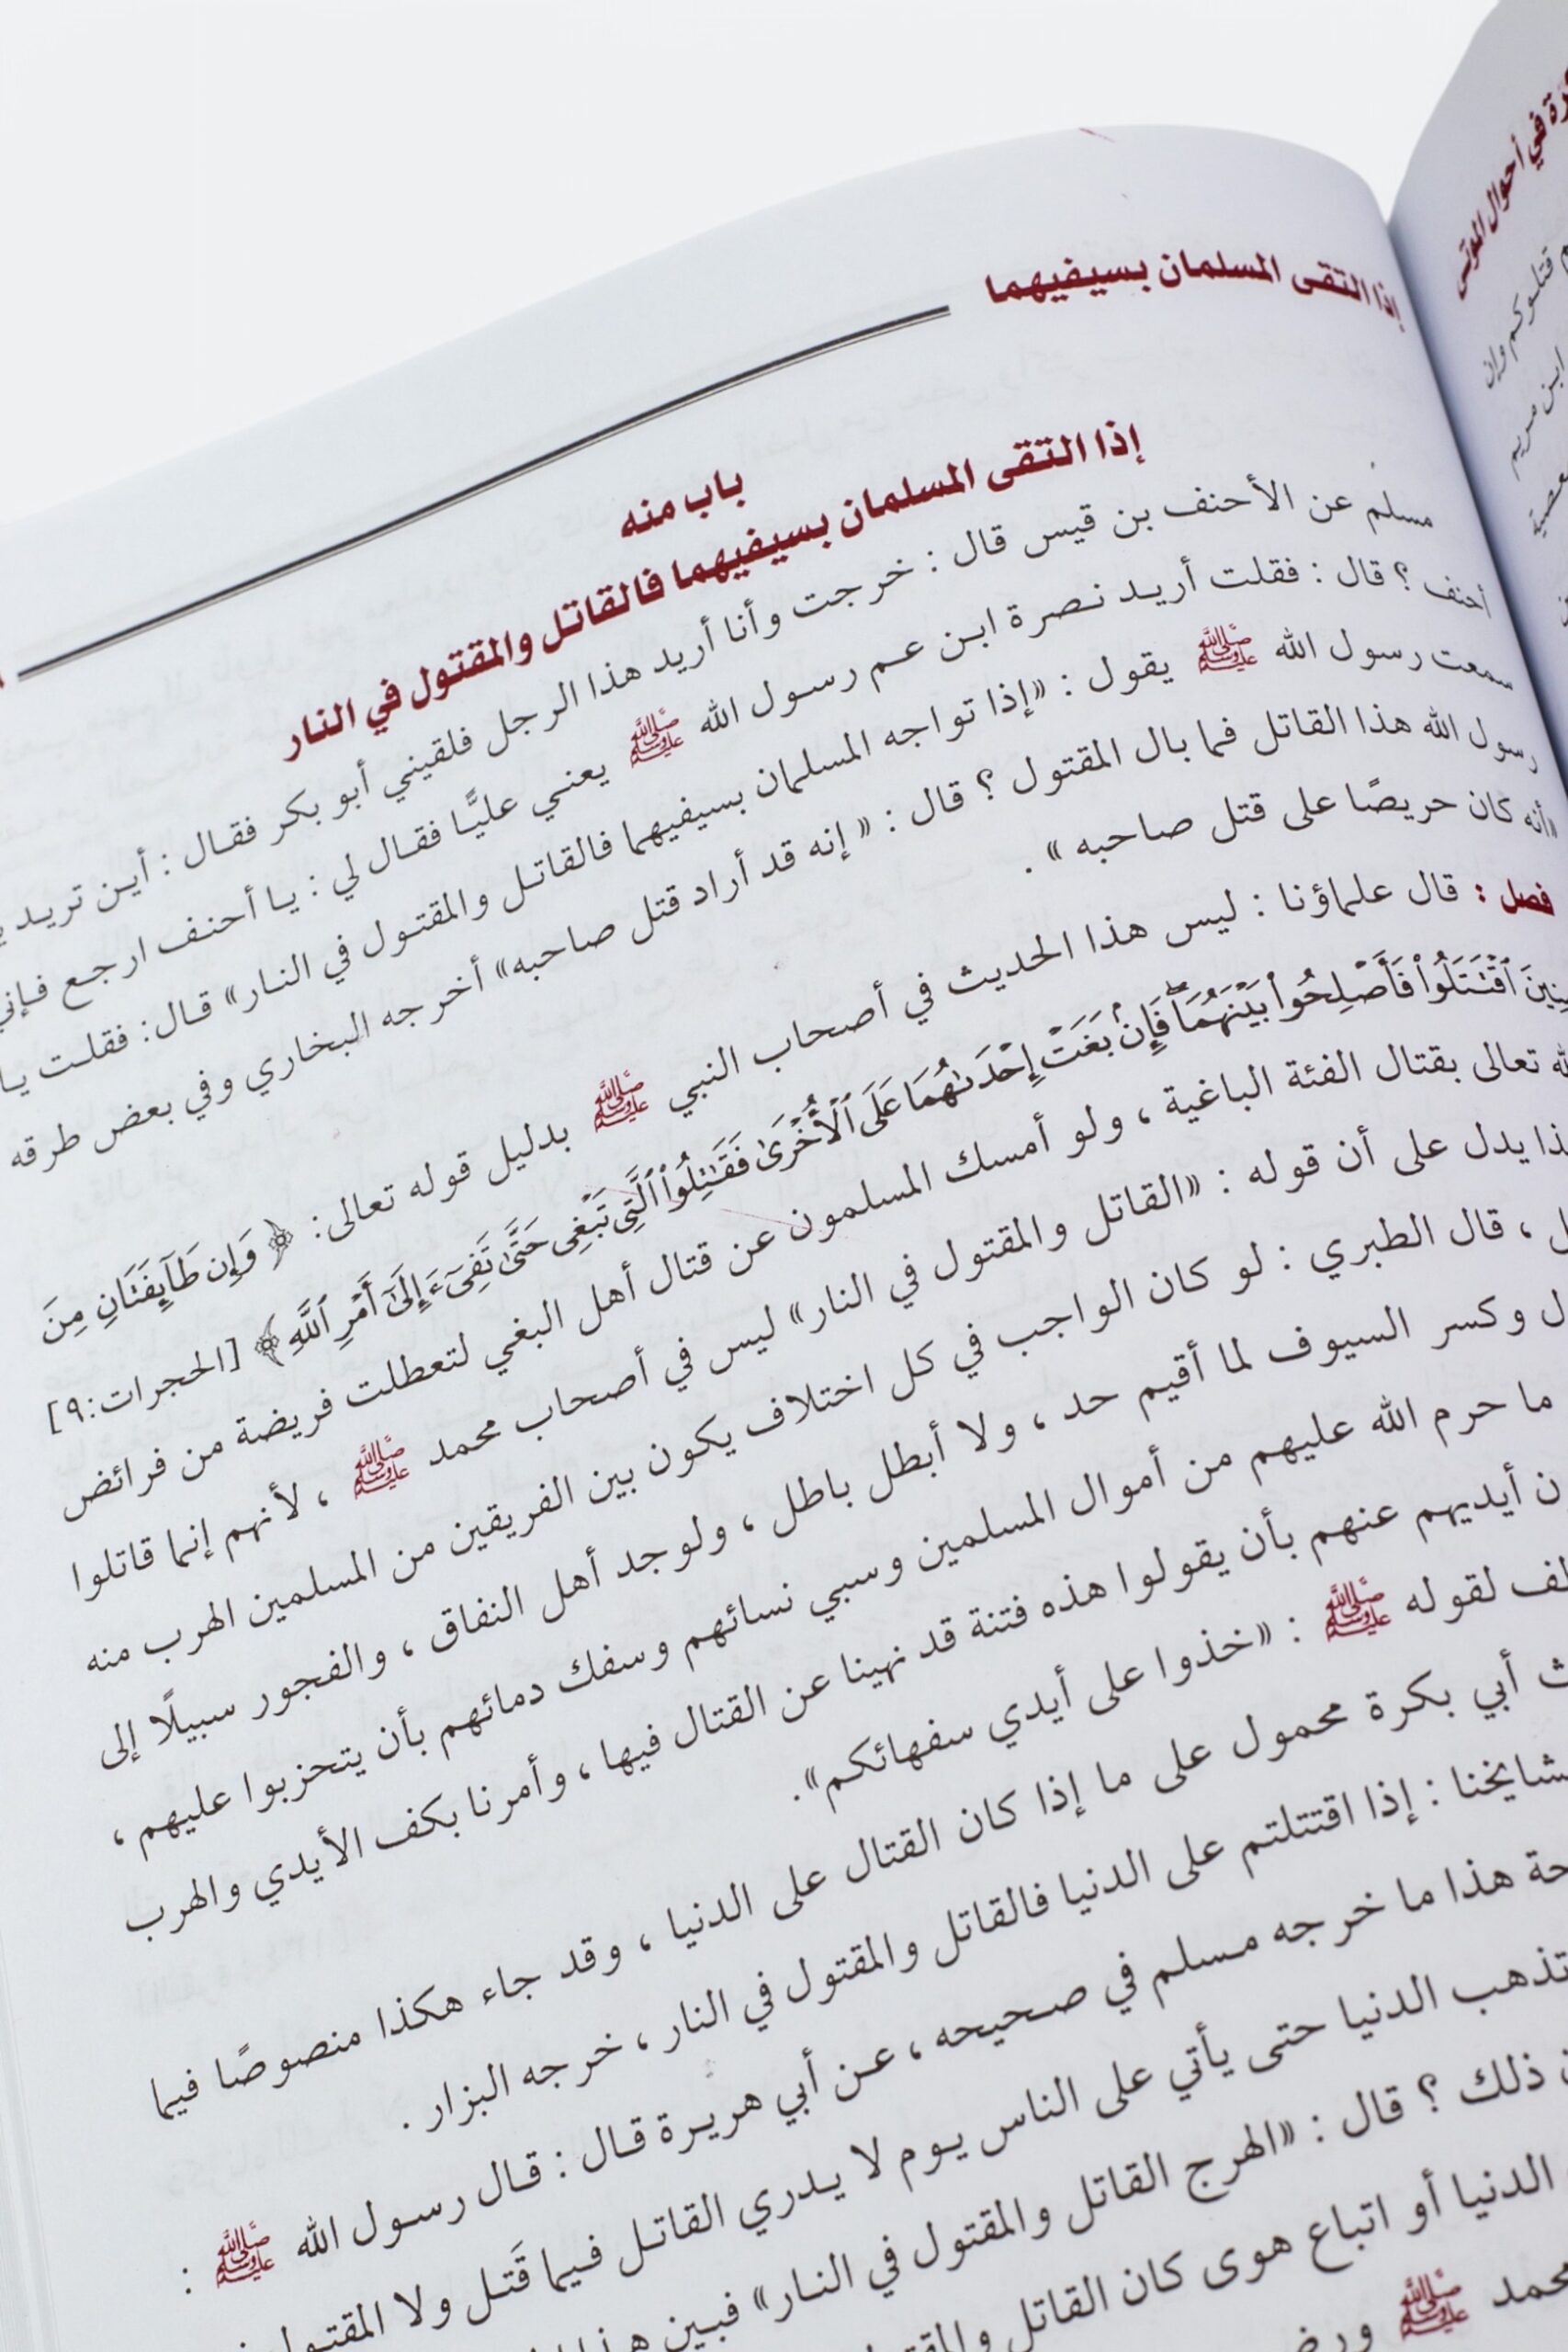 في أحوال الموتى
قتلوكم وإن
ابن مريم
إذا التقى المسلمان بسيفيهما
باب منه
إذا التقى المسلمان بسيفيهما فالقاتل والمقتول في النار
مسلم عن الأحنف بن قيس قال : خرجت وأنا أريد هذا الرجل فلقيني أبو بكر فقال : أين تريد
أحنف ؟ قال : فقلت أريد نصرة ابن عم رسول الله ﷺ يعني عليًّا فقال لي : يا أحنف ارجع فإني
سمعت رسول الله ﷺ يقول : «إذا تواجه المسلمان بسيفيهما فالقاتل والمقتول في النار» قال: فقلت يا
رسول الله هذا القاتل فما بال المقتول ؟ قال : « إنه قد أراد قتل صاحبه» أخرجه البخاري وفي بعض طرقه
«أنه كان حريصًا على قتل صاحبه » .
فصل : قال علماؤنا : ليس هذا الحديث في أصحاب النبي ﷺ بدليل قوله تعالى: ﴿ وَإِن طَآئِفَتَانِ مِنَ
ٱقْتَتَلُوا۟ فَأَصْلِحُوا۟ بَيْنَهُمَا ۖ فَإِنۢ بَغَتْ إِحْدَىٰهُمَا عَلَى ٱلْأُخْرَىٰ فَقَـٰتِلُوا۟ ٱلَّتِى تَبْغِى حَتَّىٰ تَفِىٓءَ إِلَىٰٓ أَمْرِ ٱللَّهِ ﴾ [الحجرات:٩]
تعالى بقتال الفئة الباغية ، ولو أمسك المسلمون عن قتال أهل البغي لتعطلت فريضة من فرائض
يدل على أن قوله : «القاتل والمقتول في النار» ليس في أصحاب محمد ﷺ ، لأنهم إنما قاتلوا
، قال الطبري : لو كان الواجب في كل اختلاف يكون بين الفريقين من المسلمين الهرب منه
وكسر السيوف لما أقيم حد ، ولا أبطل باطل ، ولوجد أهل النفاق ، والفجور سبيلًا إلى
ما حرم الله عليهم من أموال المسلمين وسبي نسائهم وسفك دمائهم بأن يتحزبوا عليهم ،
أيديهم عنهم بأن يقولوا هذه فتنة قد نهينا عن القتال فيها ، وأمرنا بكف الأيدي والهرب
لقوله ﷺ : «خذوا على أيدي سفهائكم».
أبي بكرة محمول على ما إذا كان القتال على الدنيا ، وقد جاء هكذا منصوصًا فيما
: إذا اقتتلتم على الدنيا فالقاتل والمقتول في النار ، خرجه البزار .
هذا ما خرجه مسلم في صحيحه ، عن أبي هريرة قال : قال رسول الله ﷺ :
تذهب الدنيا حتى يأتي على الناس يوم لا يدري القاتل فيما قَتل ولا
ذلك ؟ قال : «الهرج القاتل والمقتول في النار» فبين هذا
الدنيا أو اتباع هوى كان القاتل
محمد ﷺ